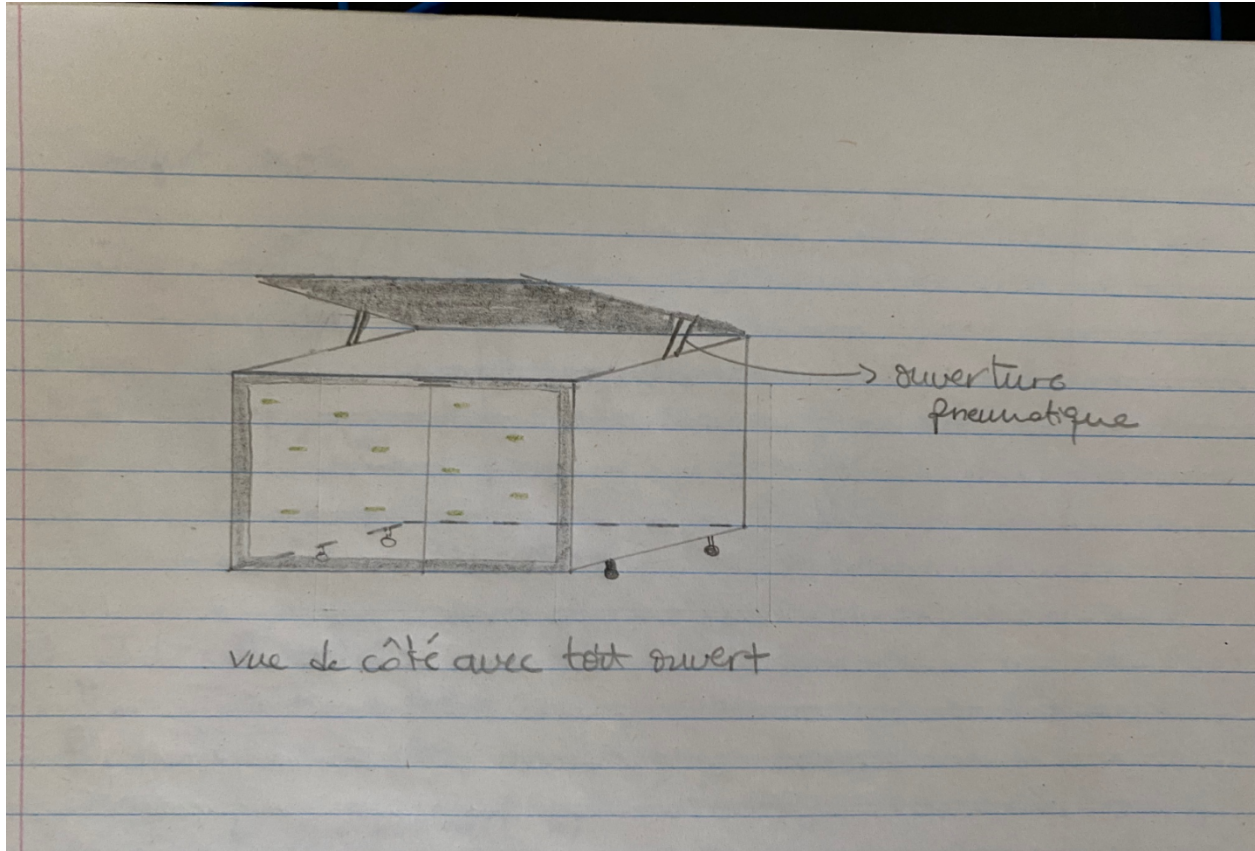 ouverture
pneumatique
vue de côté avec toit ouvert